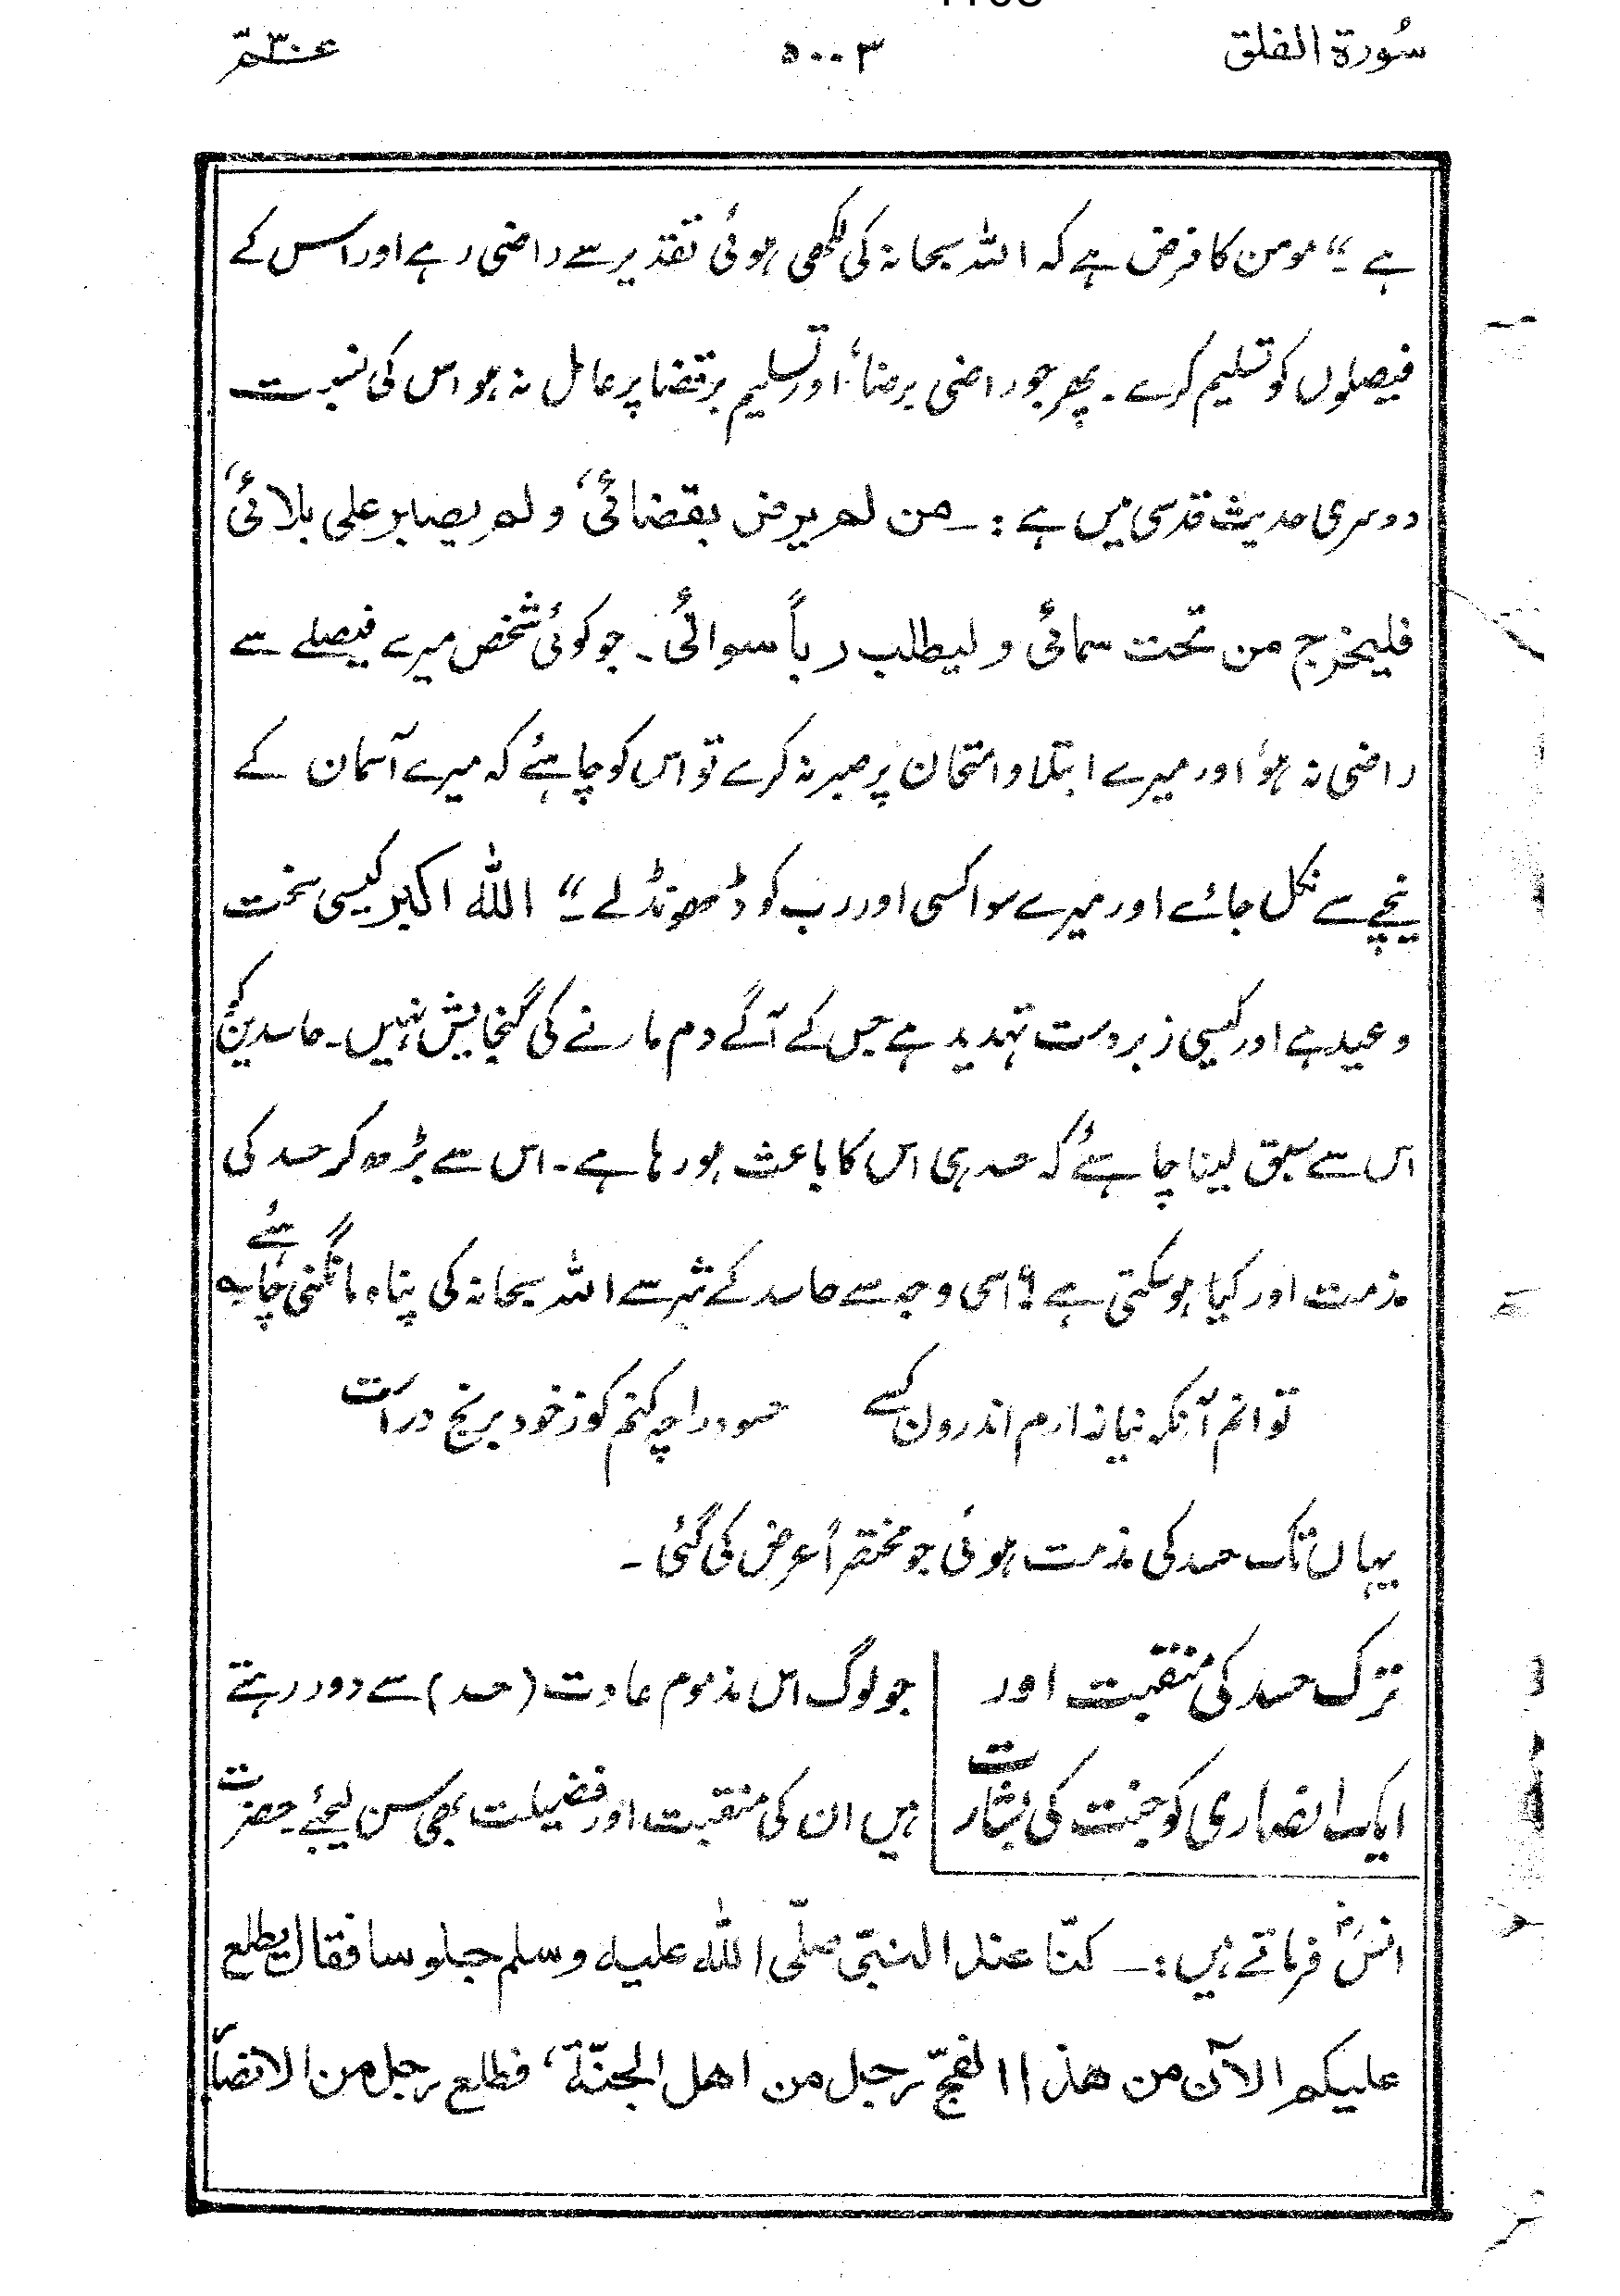 سُورة الفلق ۵۰۰۳ عـمّ ۳۰
ہے ۔“ مومن کا فرض ہے کہ اللہ سبحانہ کی لکھی ہوئی تقدیر سے راضی رہے اور اس کے
فیصلوں کو تسلیم کرے ۔ پھر جو راضی برضاء اور تسلیم بر قضا پر عامل نہ ہو اس کی نسبت
دوسری حدیث قدسی میں ہے :۔ من لم یرض بقضائی، ولم یصابر علی بلائی،
فلیخرج من تحت سمائی ولیطلب رباً سوائی ۔ جو کوئی شخص میرے فیصلے سے
راضی نہ ہو، اور میرے ابتلا و امتحان پر صبر نہ کرے تو اس کو چاہئے کہ میرے آسمان کے
نیچے سے نکل جائے اور میرے سوا کسی اور رب کو ڈھونڈ لے ۔“ اللہ اکبر کیسی سخت
وعید ہے اور کیسی زبردست تہدید ہے جس کے آگے دم مارنے کی گنجایش نہیں ۔ حاسدین کو
اس سے سبق لینا چاہئے کہ حسد ہی اس کا باعث ہو رہا ہے ۔ اس سے بڑھ کر حسد کی
مذمت اور کیا ہو سکتی ہے ؟ اسی وجہ سے حاسد کے شر سے اللہ سبحانہ کی پناہ مانگنی چاہئے
توانم آنکہ نیازارم اندرون کسے حسود را چہ کنم کو ز خود برنج در است
یہاں تک حسد کی مذمت ہوئی جو مختصراً عرض کی گئی ۔
ترک حسد کی منقبت اور
ایک انصاری کو جنت کی بشارت
جو لوگ اس مذموم عادت (حسد) سے دور رہتے
ہیں ان کی منقبت اور فضیلت بھی سن لیجئے ۔ حضرت
انسؓ فرماتے ہیں :۔ کنّا عند النبیّ صلّی اللہ علیہ وسلم جلوسا فقال یطلع
علیکم الآن من ھذا الفجّ رجل من اھل الجنّۃ، فطلع رجل من الانصار